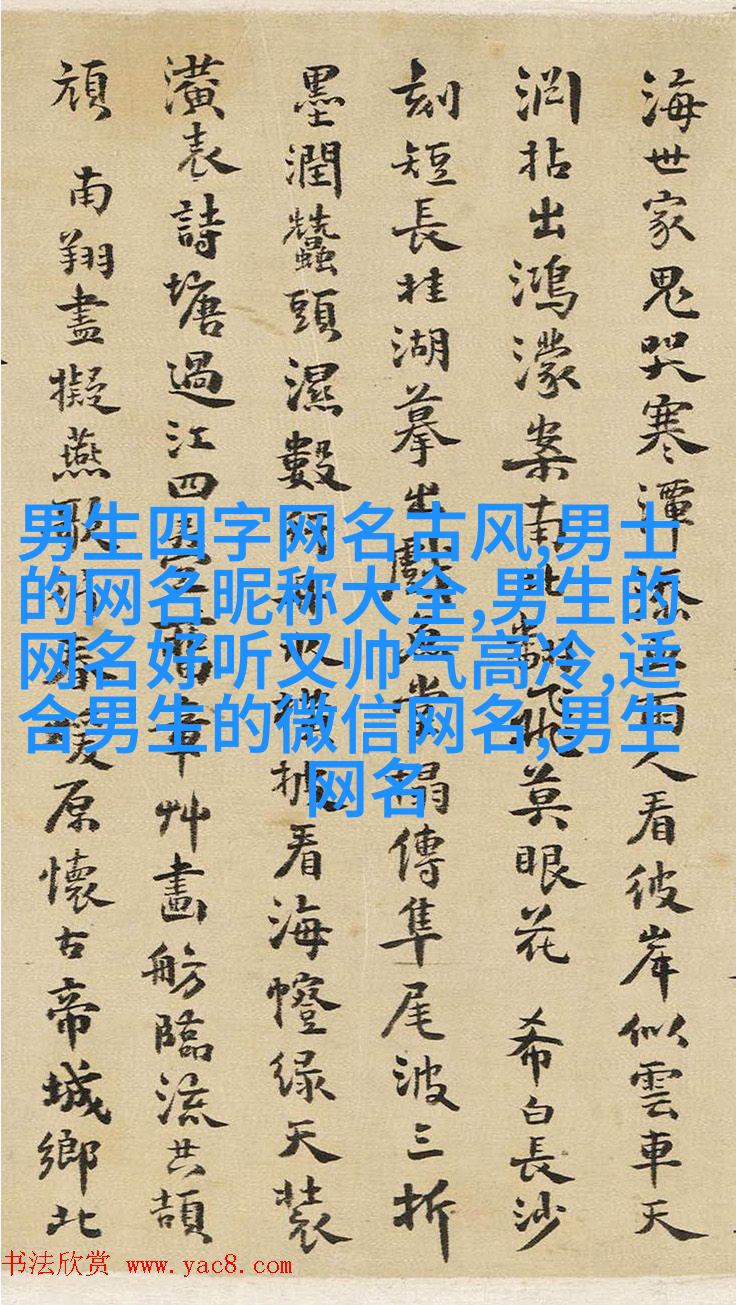 海世家鬼哭寒潭雨人看彼岸似雲車天
洞拈出鴻濛案南北飛莫眼花 希白長沙
刻短長桂湖摹出當搨傳隼尾波三折
墨潤蠶頭濕數看海幢绿天裝
潢表詩塘過江四章艸畫舫臨流共頡
頏 南翔盡擬燕歌春緩原懷古帝城鄉北
男生四字网名古风,男士
的网名昵称大全,男生的
网名姊听又帅气高冷,适
合男生的微信网名,男生
网名
书法欣赏 www.yac8.com